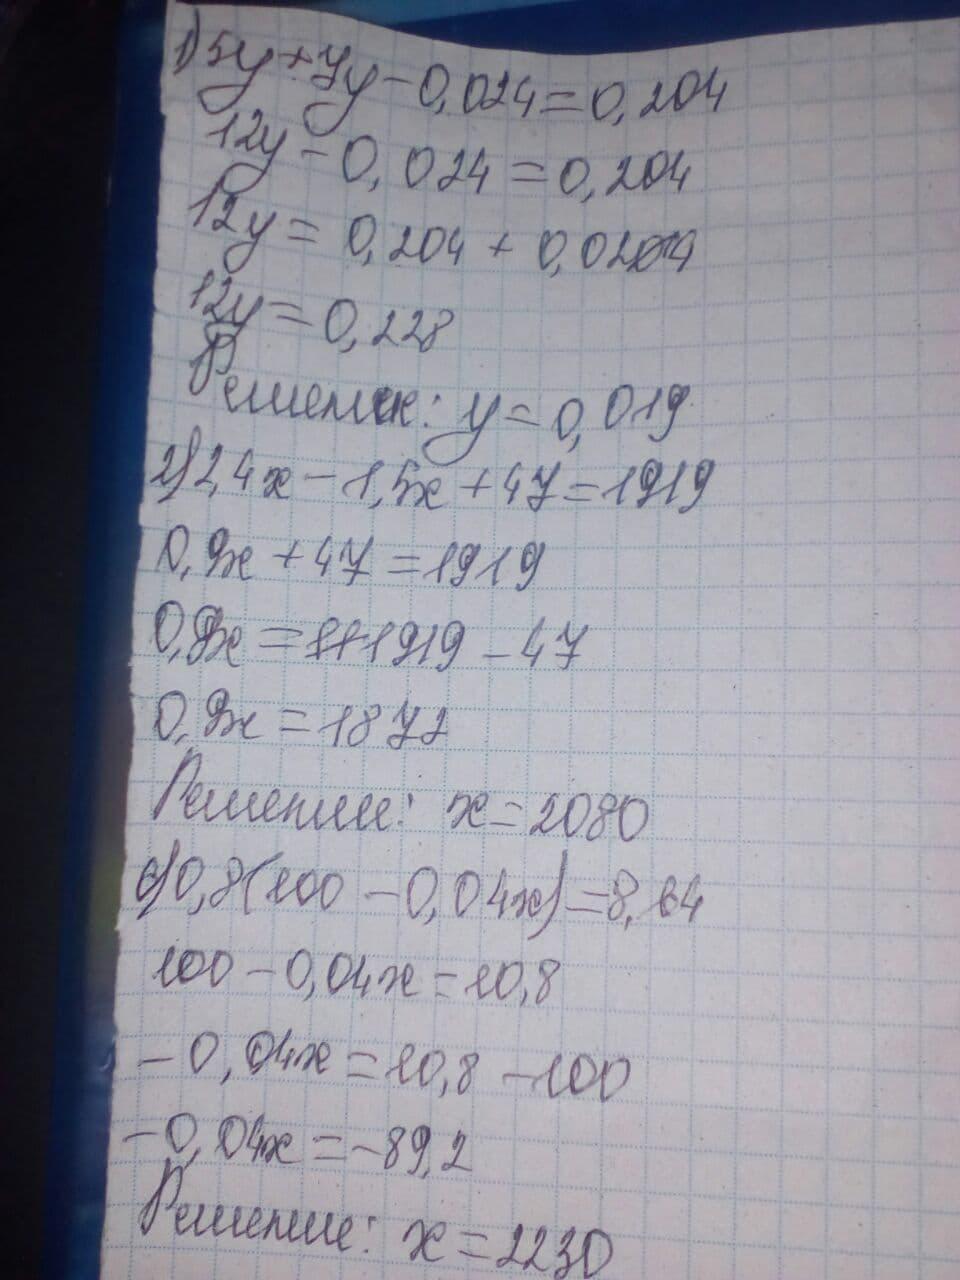 1) 5y + 7y - 0,024 = 0,204
12y - 0,024 = 0,204
12y = 0,204 + 0,024
12y = 0,228
Решение: y = 0,019
2) 2,4x - 1,5x + 47 = 1919
0,9x + 47 = 1919
0,9x = 1919 - 47
0,9x = 1872
Решение: x = 2080
0,8(100 - 0,04x) = 8,64
100 - 0,04x = 10,8
-0,04x = 10,8 - 100
-0,04x = -89,2
Решение: x = 2230